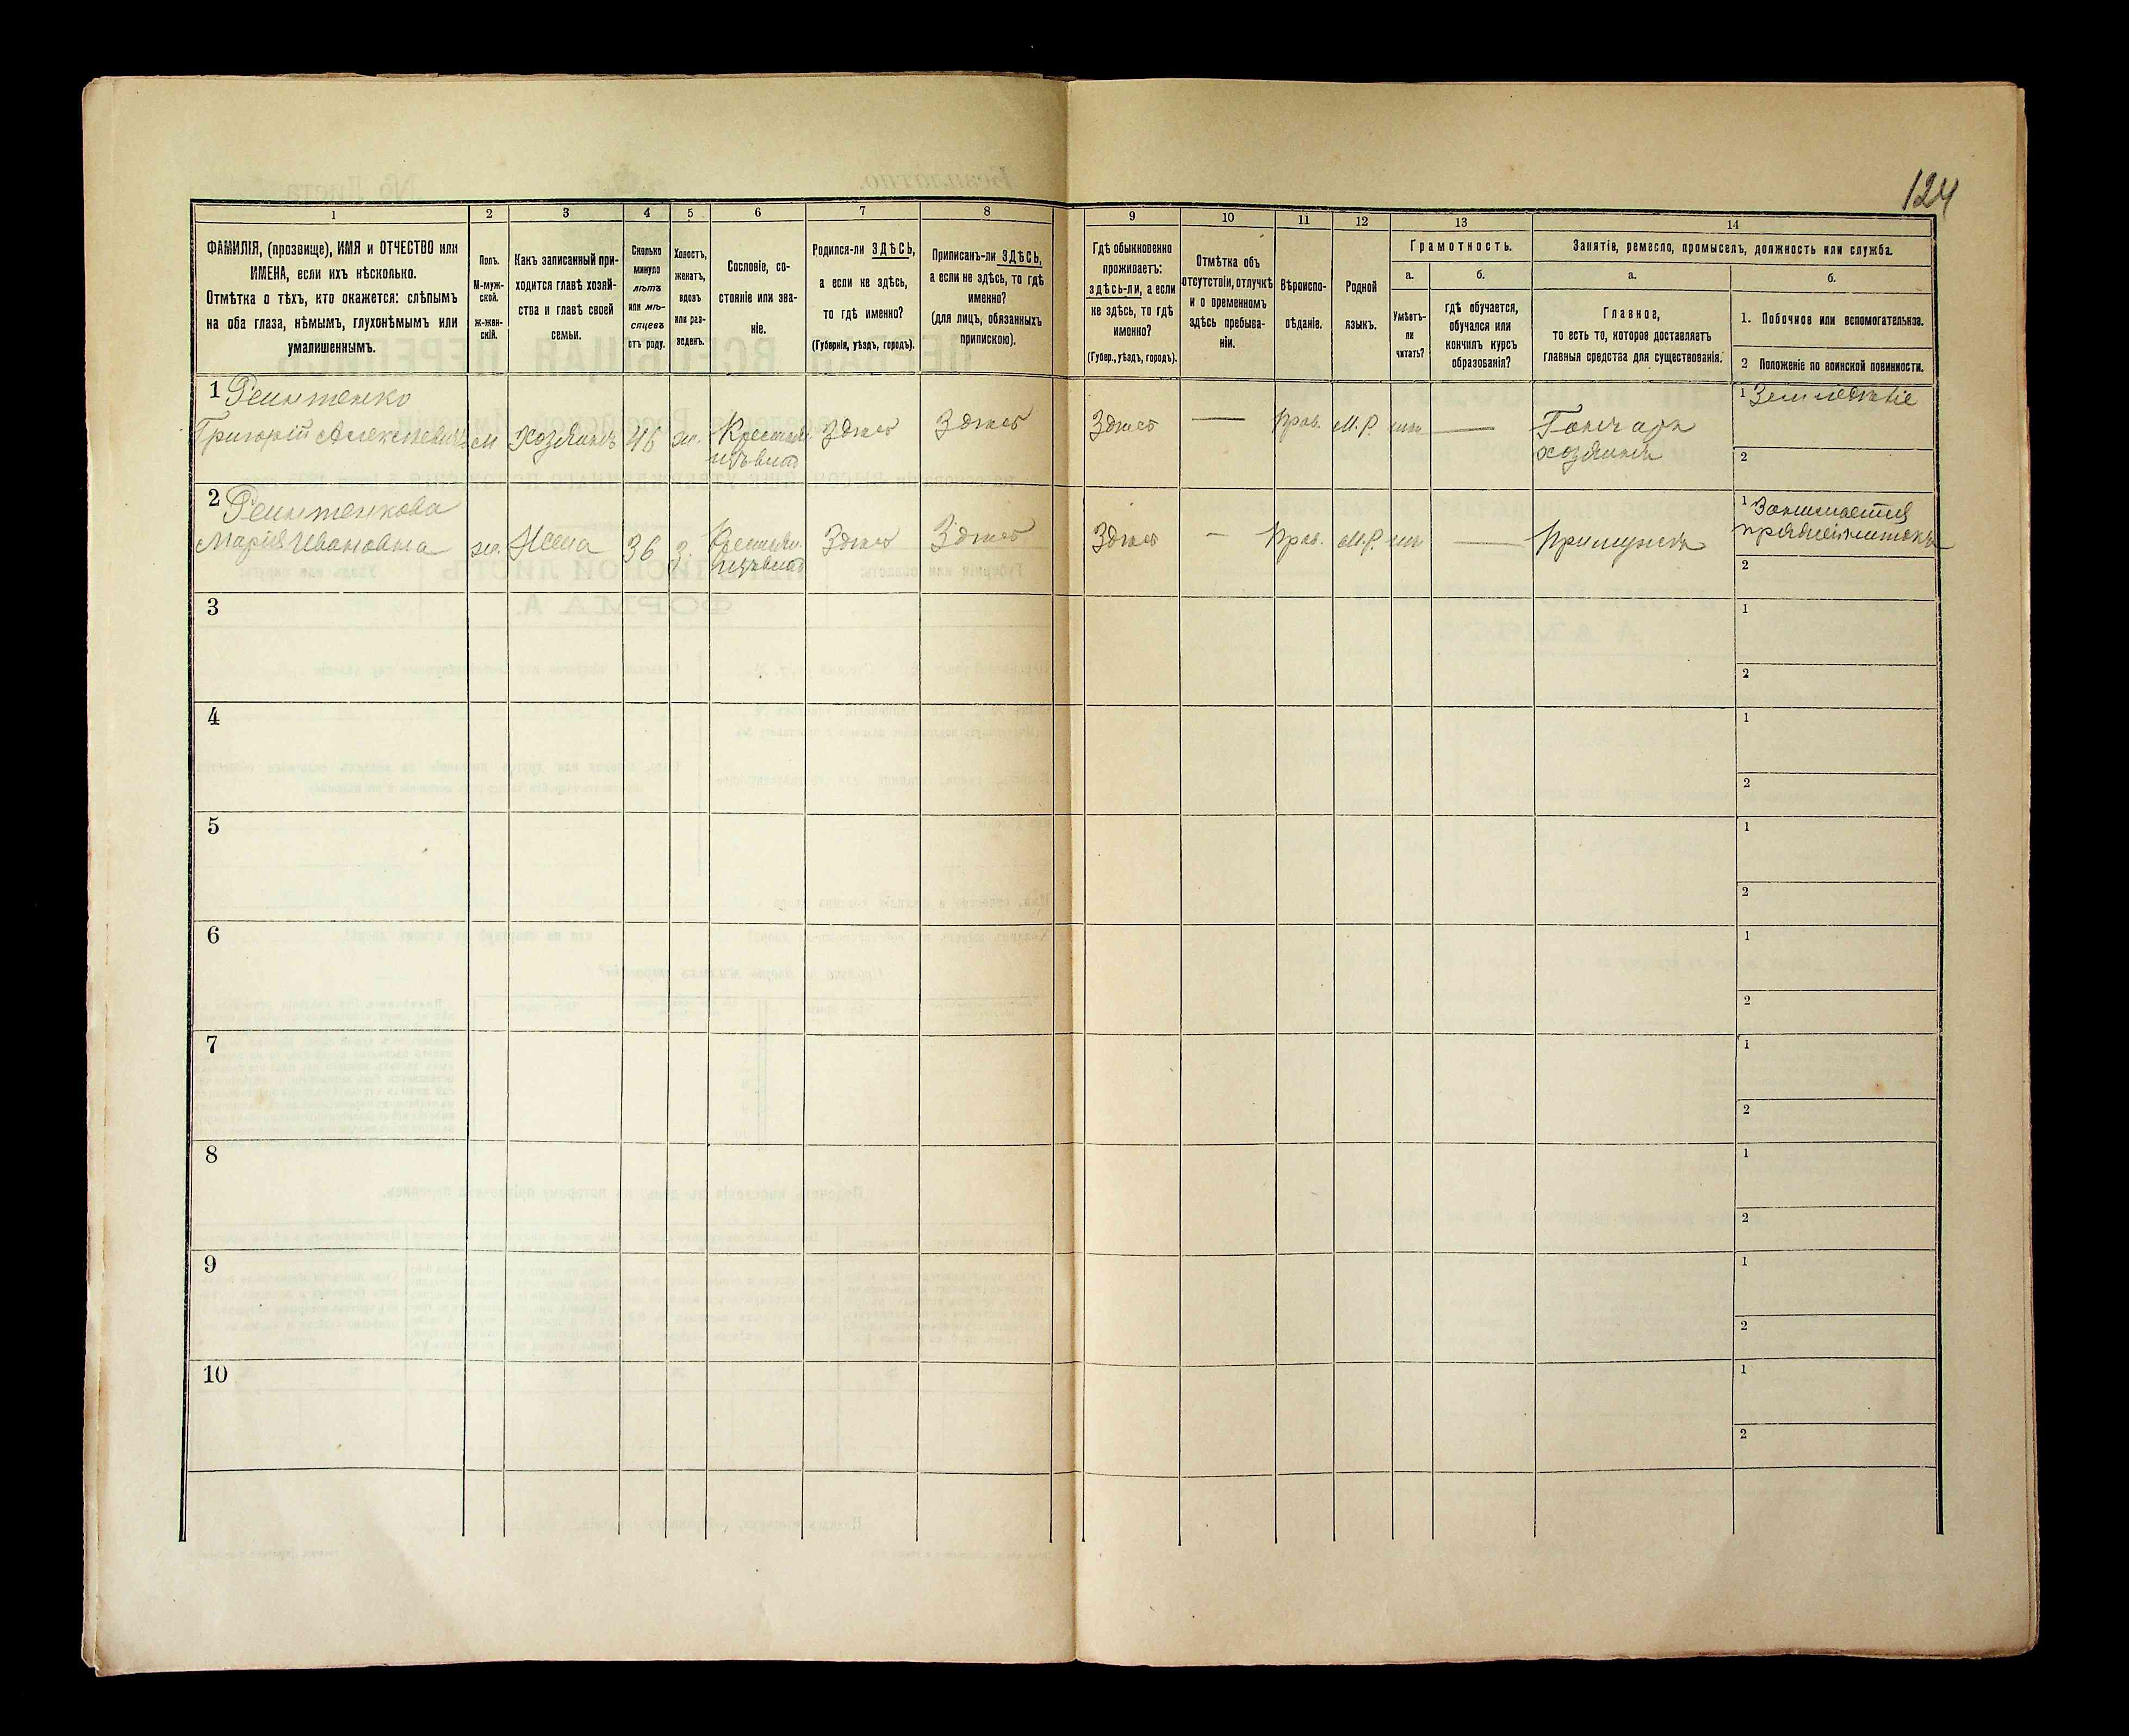 124
1
2
3
4
5
6
7
8
9
10
11
12
13
14
ФАМИЛІЯ, (прозвище), ИМЯ и ОТЧЕСТВО или
ИМЕНА, если ихъ нѣсколько.
Отмѣтка о тѣхъ, кто окажется: слѣпымъ
на оба глаза, нѣмымъ, глухонѣмымъ или
умалишеннымъ.
Полъ.
М-муж-
ской.
ж-жен-
скій.
Какъ записанный при-
ходится главѣ хозяй-
ства и главѣ своей
семьи.
Сколько
минуло
лѣтъ
или мѣ-
сяцевъ
отъ роду.
Холостъ,
женатъ,
вдовъ
или раз-
веденъ.
Сословіе, со-
стояніе или зва-
ніе.
Родился-ли ЗДѢСЬ,
а если не здѣсь,
то гдѣ именно?
(Губернія, уѣздъ, городъ).
Приписанъ-ли ЗДѢСЬ,
а если не здѣсь, то гдѣ
именно?
(для лицъ, обязанныхъ
припискою).
Гдѣ обыкновенно
проживаетъ:
здѣсь-ли, а если
не здѣсь, то гдѣ
именно?
(Губер., уѣздъ, городъ).
Отмѣтка объ
отсутствіи, отлучкѣ
и о временномъ
здѣсь пребыва-
ніи.
Вѣроиспо-
вѣданіе.
Родной
языкъ.
Грамотность.
а.
Умѣетъ-
ли
читать?
б.
гдѣ обучается,
обучался или
кончилъ курсъ
образованія?
Занятіе, ремесло, промыселъ, должность или служба.
а.
Главное,
то есть то, которое доставляетъ
главныя средства для существованія.
б.
1. Побочное или вспомогательное.
2 Положеніе по воинской повинности.
1
Григорій Алексѣевичъ м Хозяинъ 46 ж. Крестьян. Здѣсь Здѣсь Здѣсь — Прав. М.Р. — Гончаръ
изъ влад
хозяинъ
1 Земледѣліе
2
2
Марія Ивановна ж. Жена 36 З. Крестьян. Здѣсь Здѣсь Здѣсь — Прав. М.Р. —
изъ влад
1 Занимается
2
3
1
2
4
1
2
5
1
2
6
1
2
7
1
2
8
1
2
9
1
2
10
1
2